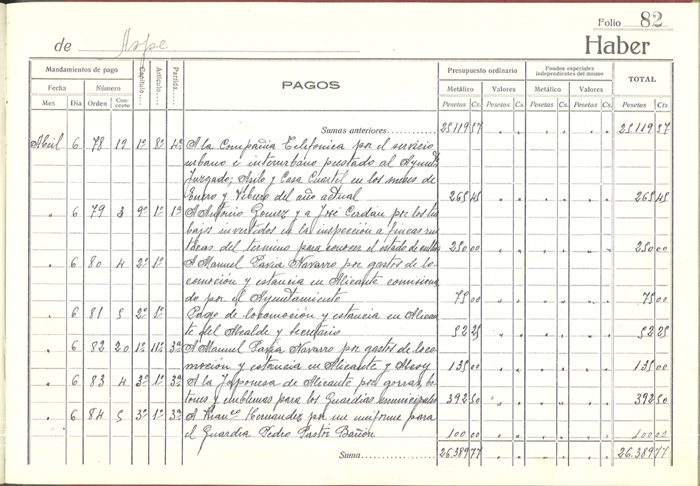 Folio 82
de Aspe
Haber
Mandamientos de pago
Fecha Número
Mes Día Orden Con-cepto
Capítulo....
Artículo....
Partida....
PAGOS
Presupuesto ordinario
Metálico Valores
Pesetas Cs. Pesetas Cs.
Fondos especiales independientes del mismo
Metálico Valores
Pesetas Cs. Pesetas Cs.
TOTAL
Pesetas Cts
Sumas anteriores 25119 57 25119 57
Abril 6 78 19 1º 8º 4º A la Compañia Telefónica por el servicio
urbano e interurbano prestado al Aymtº
Juzgado; Asilo y Casa Cuartel en los meses de
Enero y Febrero del año actual 265 45 265 45
" 6 79 3 9º 1º 1º A Antonio Gomez y a José Cerdán por los tra
bajos invertidos en la inspección a fincas rus
ticas del termino para conocer el estado de 250 00 250 00
" 6 80 4 2º 1º A Manuel Pavia Navarro por gastos de lo-
comoción y estancia en Alicante comisiona
do por el Ayuntamiento 75 00 75 00
" 6 81 5 2º 1º Pago de locomoción y estancia en Alican
te del Alcalde y Secretario 52 25 52 25
" 6 82 20 1º 11º 3º A Manuel Pavia Navarro por gastos de loco
moción y estancia en Alicante y Alcoy 135 00 135 00
" 6 83 4 3º 1º 3º A la Japonesa de Alicante por gorras, bo
tones y emblemas para los Guardias municipales 392 50 392 50
" 6 84 5 3º 1º 3º A Franco Hernandez por un uniforme para
el Guardia Pedro Pastor Bañón 100 00 100 00
Suma 26.389 77 26.389 77